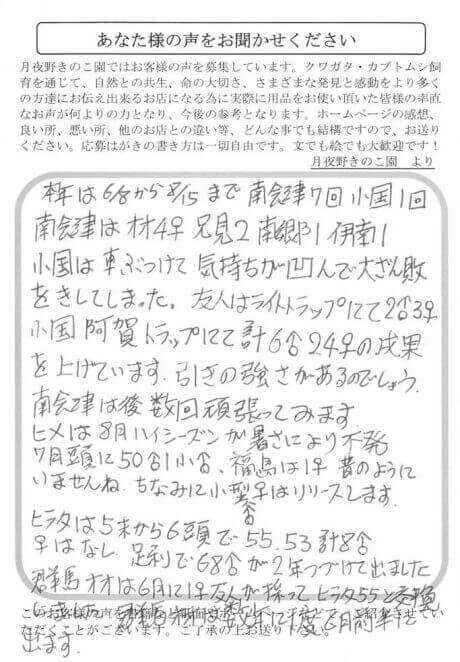 あなた様の声をお聞かせください
月夜野きのこ園ではお客様の声を募集しています。クワガタ・カブトムシ飼
育を通じて、自然との共生、命の大切さ、さまざまな発見と感動をより多く
の方達にお伝え出来るお店になる為に実際に用品をお使い頂いた皆様の率直
なお声が何よりの力となり、今後の参考となります。ホームページの感想、
良い所、悪い所、他のお店との違い等、どんな事でも結構ですので、お送り
ください。応募はがきの書き方は一切自由です。文でも絵でも大歓迎です!
月夜野きのこ園 より
本年は6/8から8/15まで南会津7回小国1回
南会津はオオ4♀ 只見2 南郷1 伊南1
小国は車ぶつけて気持ちが凹んで大ざん敗
をきしてしまった。友人はライトトラップにて2♂3♀
小国阿賀トラップにて計6♂24♀の成果
を上げています。引きの強さがあるのでしょう。
南会津は後数回頑張ってみます。
ヒメは8月ハイシーズンが暑さにより不発
7月頭に50♂1小♂、福島は1♀昔のように
いませんね。ちなみに小型♀はリリースします。
♂
ヒラタは5末から6頭で55.53計8♂
♀はなし 足利で68♂が2年つづけて出ました
群馬オオは6月に1♀友人が採ってヒラタ55と交換
このお客様の声を
ただくことがございます。ご了承の上お送り下さい。
出ます。